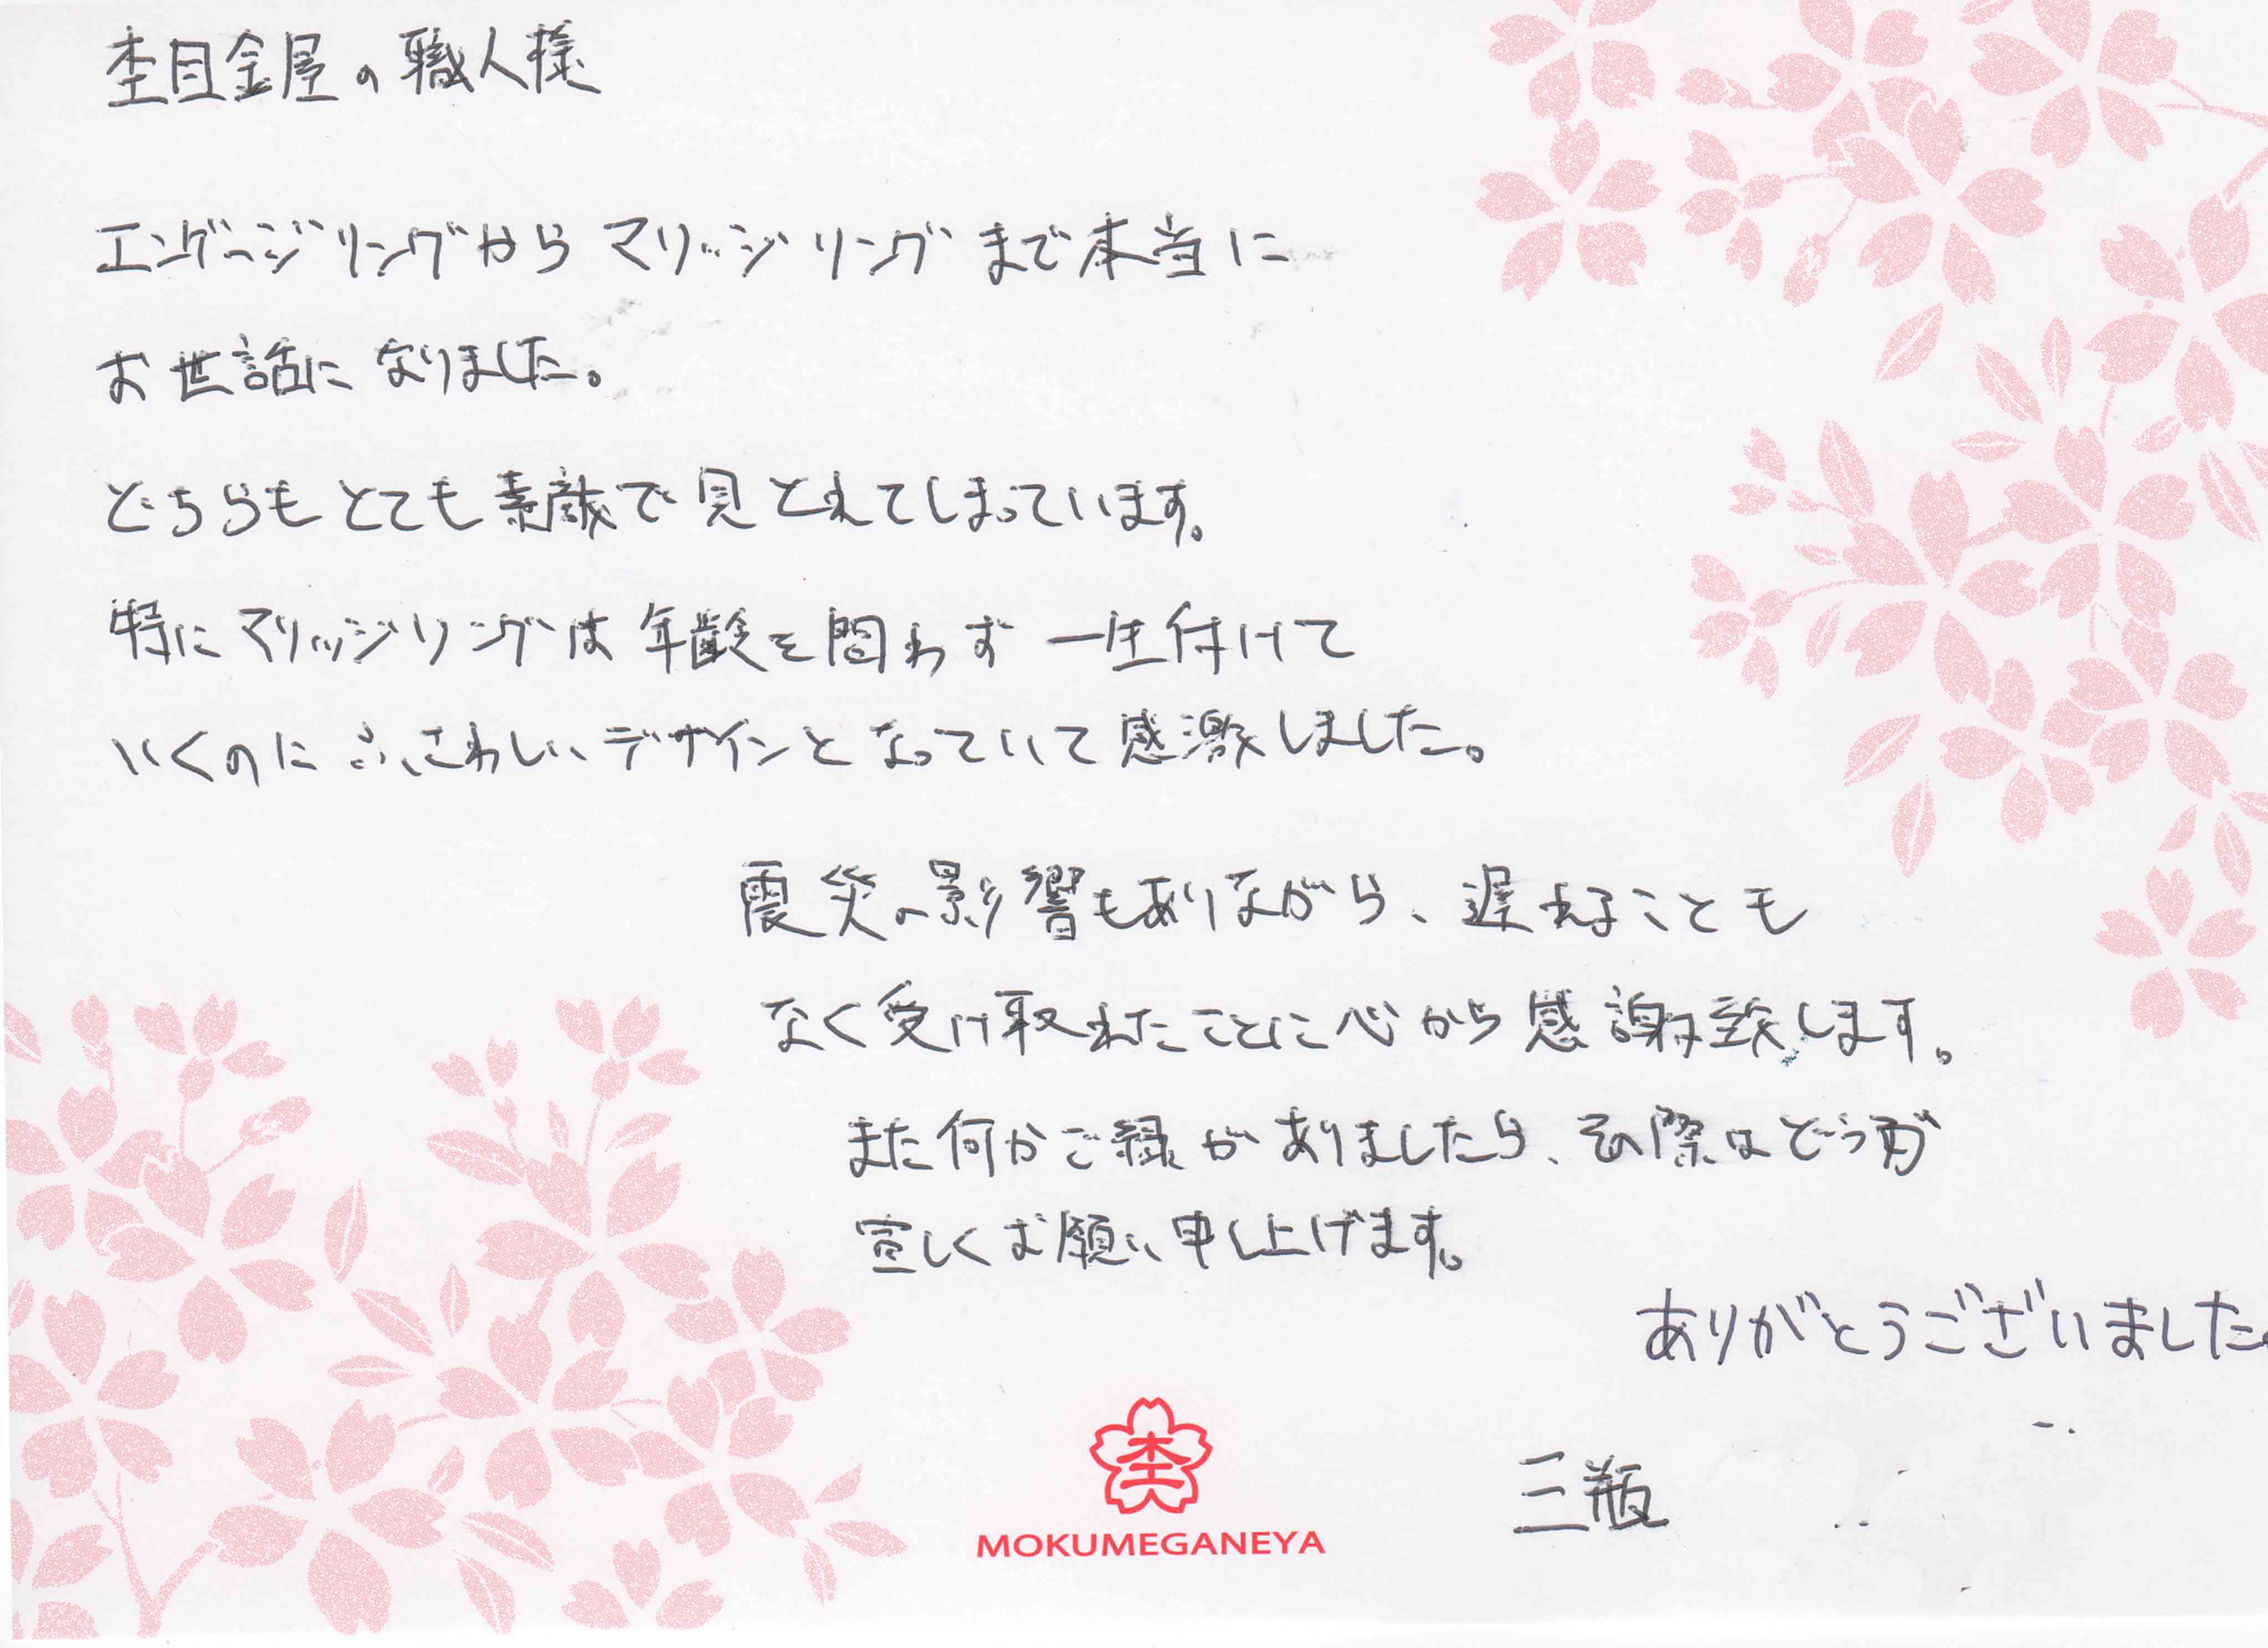 杢目金屋の職人様
エンゲージリングからマリッジリングまで本当に
お世話になりました。
どちらもとても素敵で見とれてしまっています。
特にマリッジリングは年齢を問わず一生付けて
いくのにふさわしいデザインとなっていて感激しました。
震災の影響もありながら、遅れることも
なく受け取れたことに心から感謝致します。
また何かご縁がありましたら、その際はどうか
宜しくお願い申し上げます。
ありがとうございました。
杢
MOKUMEGANEYA
三瓶